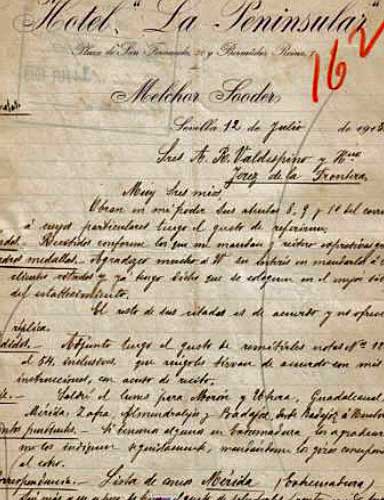 Hotel "La Peninsular"
Plaza de San Fernando, 20 y Bermúdez Reina, 1
162
Melchor Sooder
Sevilla 12 de Julio de 191
Sres A. R. Valdespino y Hno
Jerez de la Frontera
Muy Sres mios:
Obran en mi poder sus atentas 8, 9 y 10 del corr
á cuyos particulares tengo el gusto de referirme.
Recibidos conforme los que me mandan y retiro
medallas.- Agradezco mucho á V su interés en mandarlo á
clientes citados y ya tengo dicho que se coloquen en el mejor
del establecimiento.
El resto de sus citadas es de acuerdo y no ofrece
réplica.
Adjunto tengo el gusto de remitirles notas Nº
al 54, inclusives, que ruégoles sirvan de acuerdo con mis
instrucciones, con acuse de recibo.
Saldré el lunes para Morón y Utrera, Guadalcanal,
Mérida, Zafra, Almendralejo y Badajoz,
pendientes.- Si tienen alguna en Extremadura les agradeceré
me los indiquen seguidamente, mandándome los giros
al cobro.
Correspondencia.- Lista de correos Mérida (Extremadura)